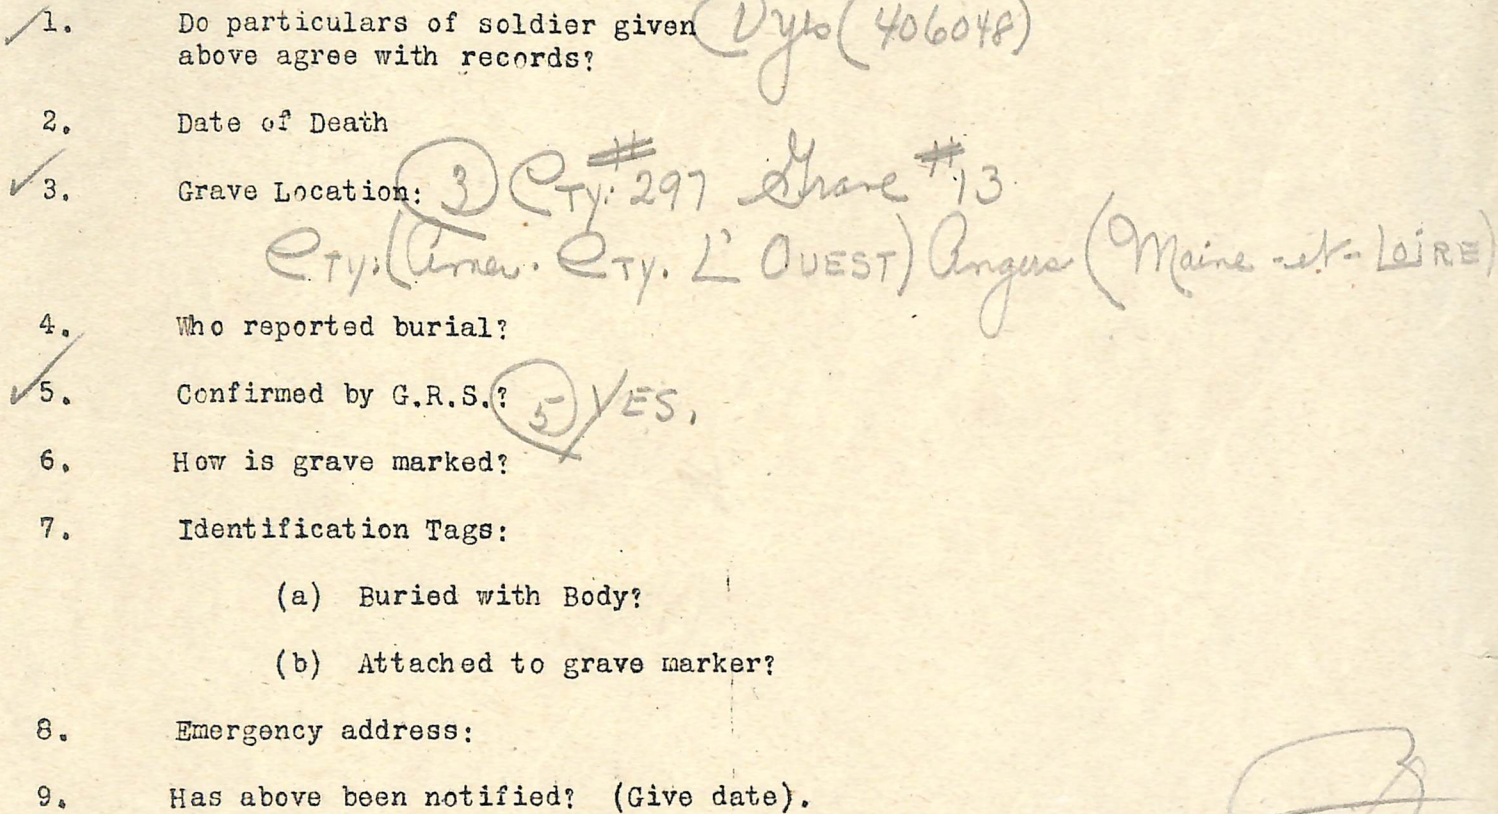 1. Do particulars of soldier given (406048)
above agree with records?
2. Date of Death
3. Grave Location: 3 Cty. #297 Grave #13
Cty. (Amer. Cty. L' OUEST) Angers (Maine-et-LOIRE)
4. Who reported burial?
5. Confirmed by G.R.S.? 5 YES.
6. How is grave marked?
7. Identification Tags:
(a) Buried with Body?
(b) Attached to grave marker?
8. Emergency address:
9. Has above been notified? (Give date).